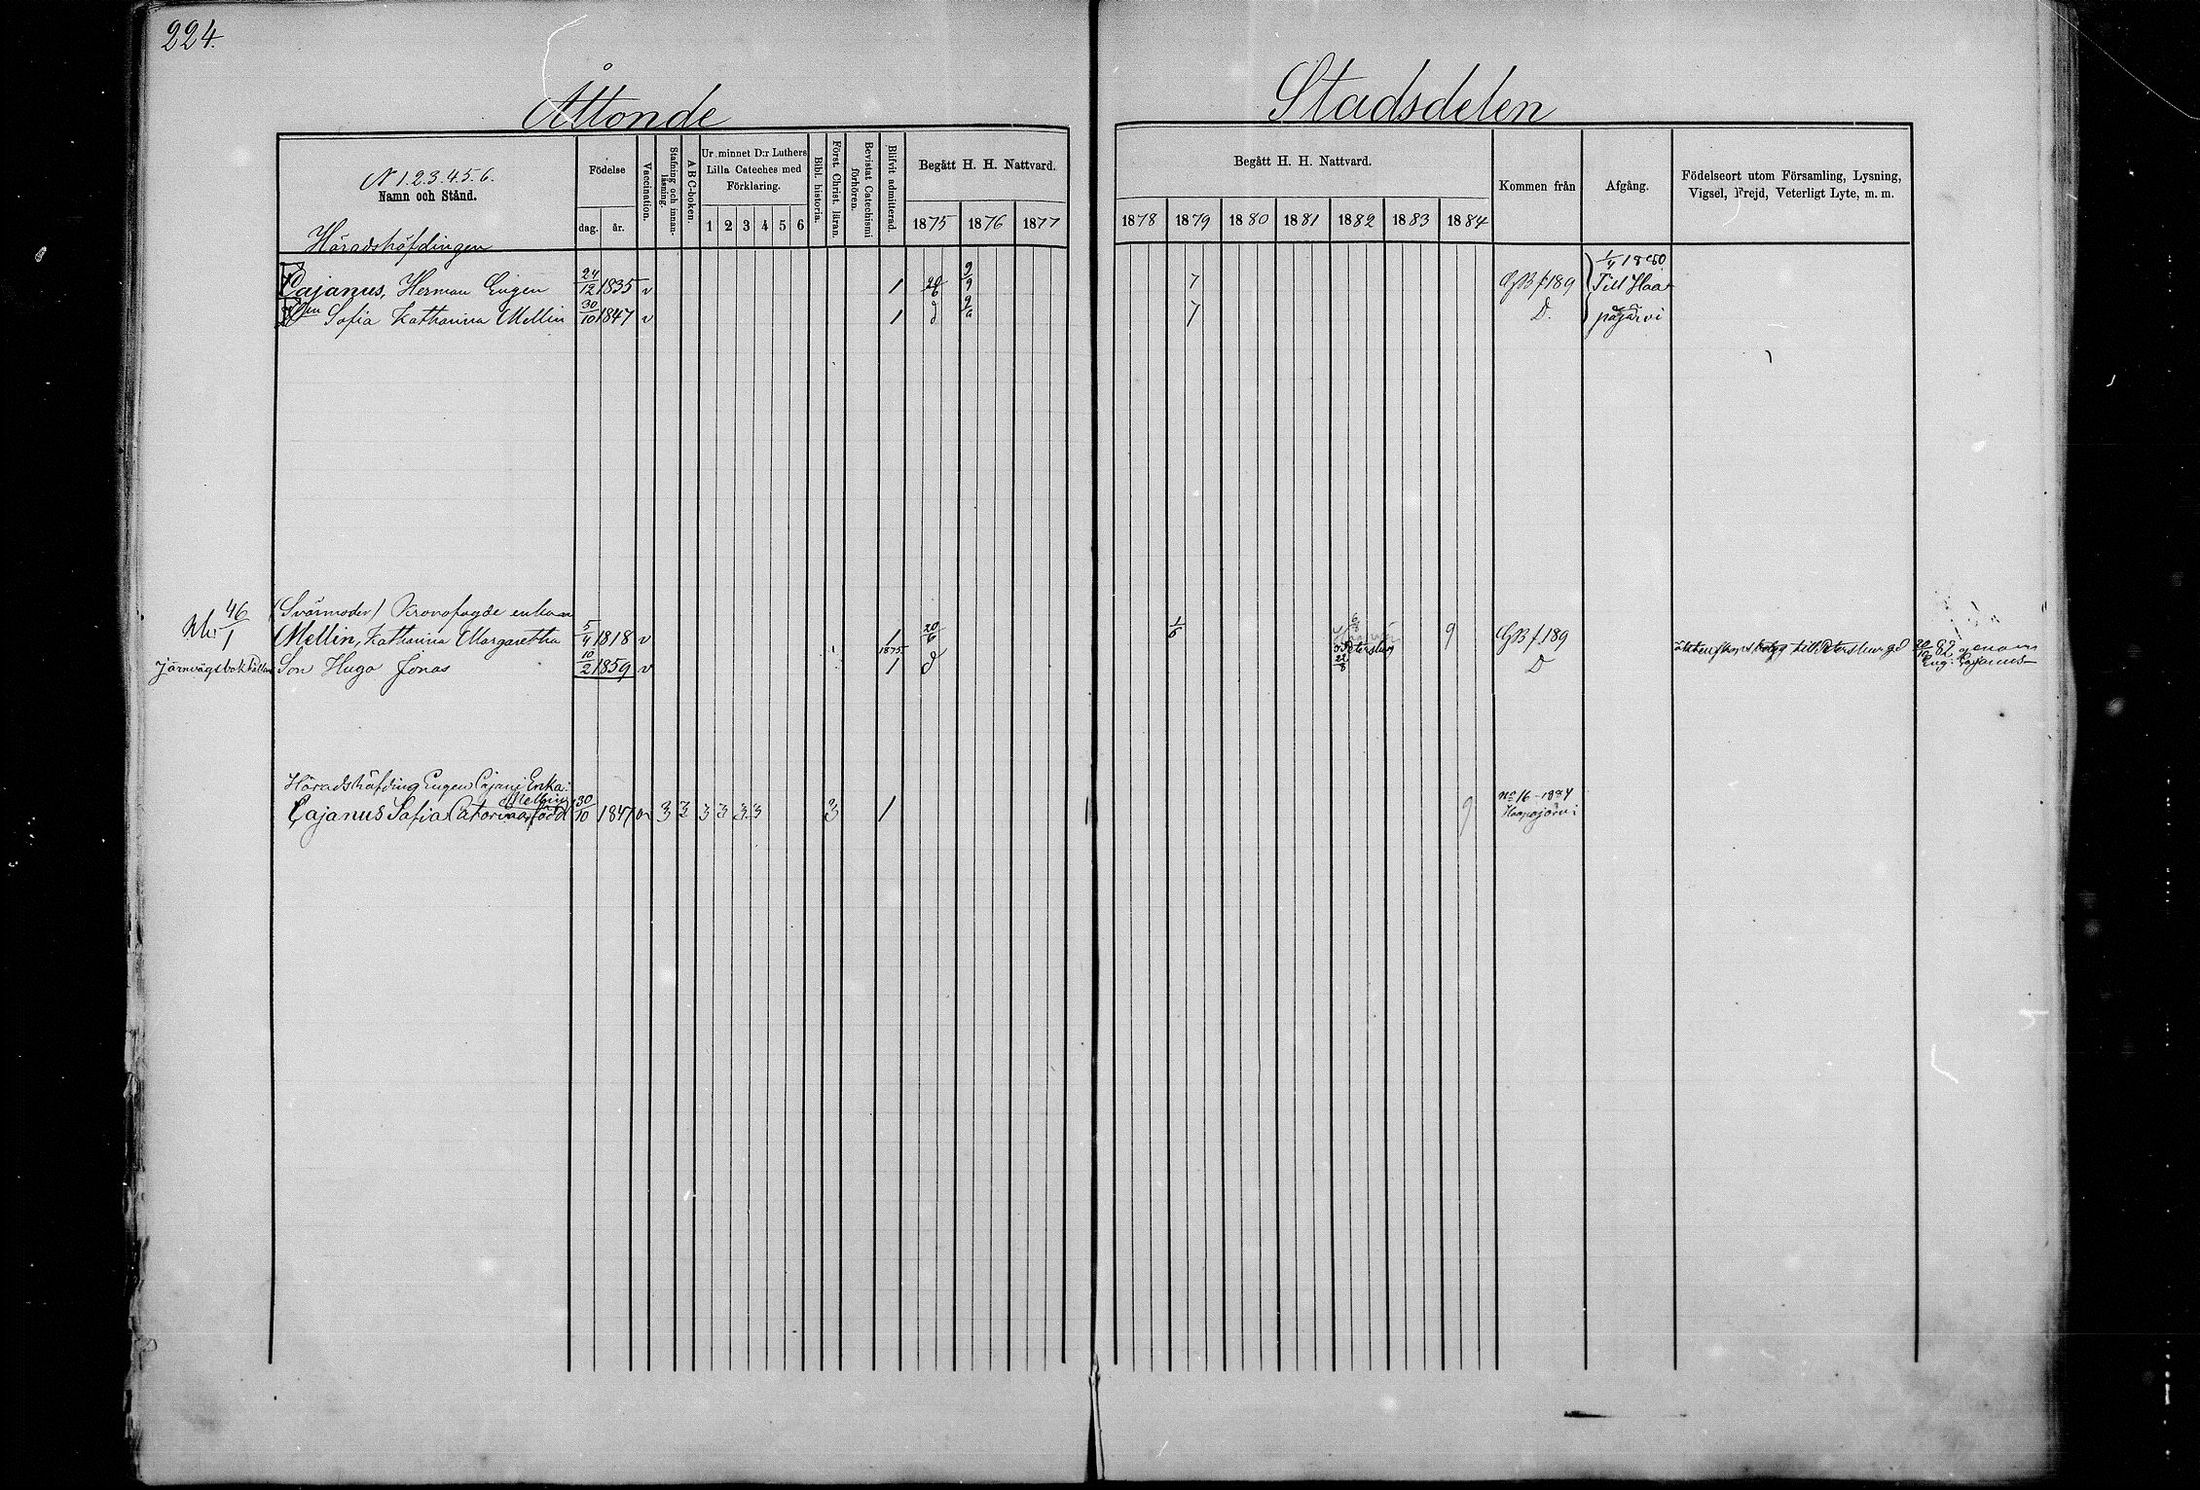 224.
Åttonde Stadsdelen
N 1.2.3.4.5.6.
Namn och Stånd.
Födelse
dag. år.
Vaccination.
Stafning och innan-
läsning.
A B C-boken.
Ur minnet D:r Luthers
Lilla Cateches med
Förklaring.
1 2 3 4 5 6
Bibl. historia.
Först. Christ. läran.
Bevistat Catechismi
förhören.
Blifvit admitterad.
Begått H. H. Nattvard.
1875 1876 1877
Begått H. H. Nattvard.
1878 1879 1880 1881 1882 1883 1884
Kommen från
Afgång.
Födelseort utom Församling, Lysning,
Vigsel, Frejd, Veterligt Lyte, m. m.
Häradshöfdingen
Cajanus, Herman Eugen 24/12 1835 v 1 20/6 9/9 7 GB f 189 1/4 1880 Till Haa-
Sofia Katharina Mellin 30/10 1847 v 1 d 9/9 7 D. pajärvi
46/1
(Svärmoder) Kronofogde enkan
Mellin, Katharina Margaretha 5/4 1818 v 1 20/6 1/6 9 GB f. 189
Järnvägsbokhållare Son Hugo Jonas 10/2 1859 v 1875 1 d Petersburg 22/8 D till Petersburg d 20/10 82 genom
Eug. Cajanus
Häradshöfding Eugen Cajani Enka:
Cajanus Sofia Catarina född Mellin 30/10 1847 v 3 2 3 3 3 3 3 1 9 no 16 - 1884
Haapajärvi